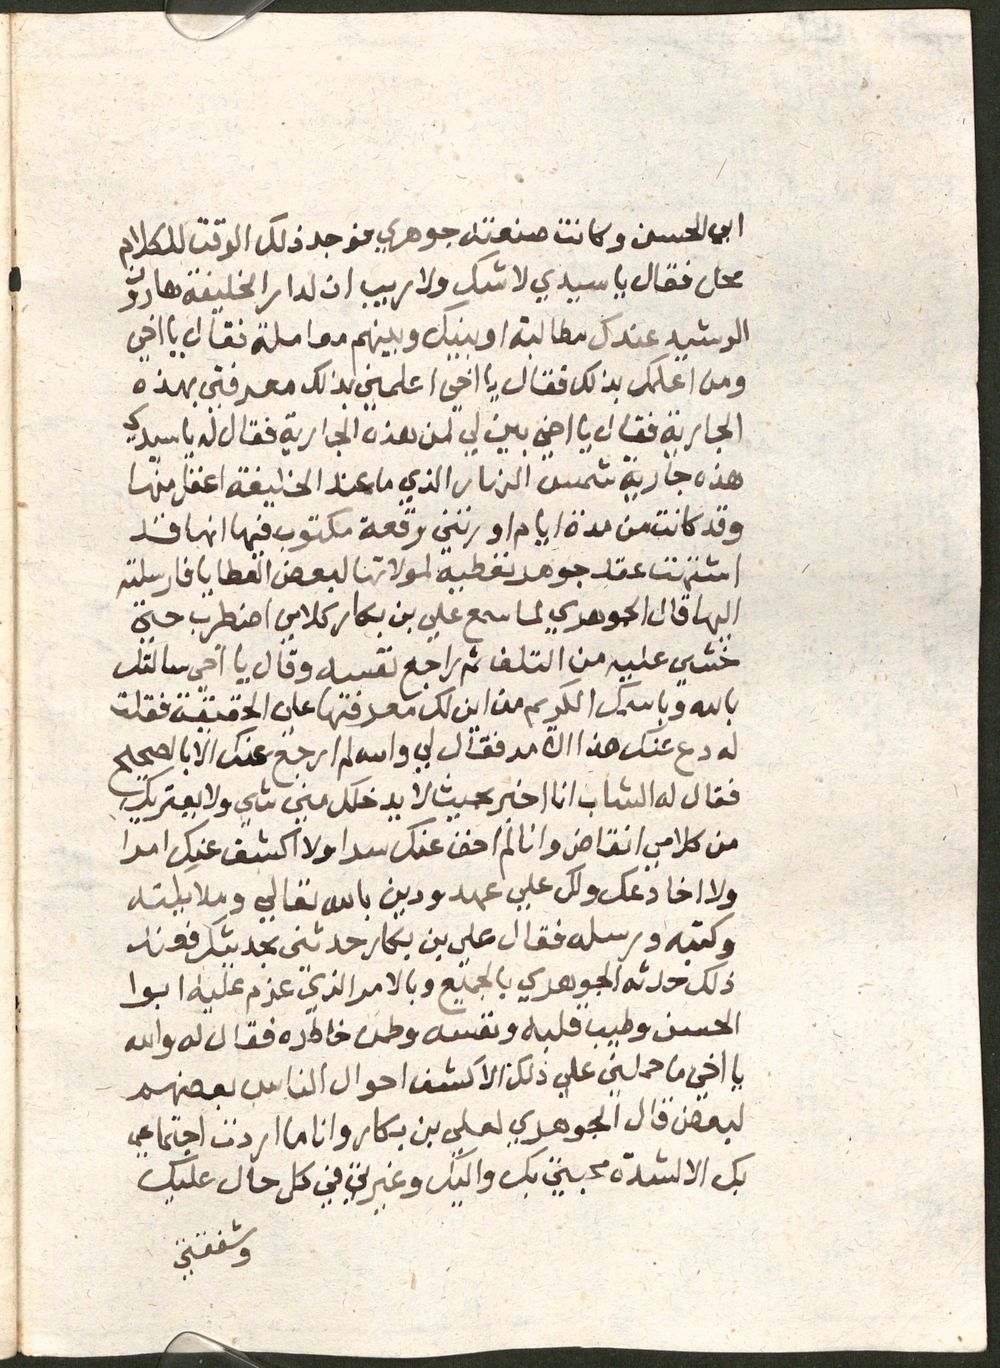 ابي الحسن وكانت صنعته جوهري فوجد ذلك الوقت للكلام
محل فقال يا سيدي لا شك ولا ريب ان لدار الخليفة هارون
الرشيد عندك مطالبة او بينك وبينهم معاملة فقال يا اخي
ومن اعلمك بذلك فقال يا اخي اعلمني بذلك معرفتي بهذه
الجارية فقال يا اخي بين لي لمن هذه الجارية فقال له يا سيدي
هذه جارية شمس النهار الذي ما عند الخليفة اعقل منها
وقد كانت من مدة ايام اورتني رقعة مكتوب فيها انها قد
اشتهت عقد جوهر تعطيه لمولاتها لبعض العطايا فارسلته
اليها قال الجوهري لما سمع علي بن بكار كلامي اضطرب حتي
خشي عليه من التلف ثم راجع نفسه وقال يا اخي سالتك
بالله وباسمك الكريم من اين لك معرفتها علي الحقيقة فقلت
له دع عنك هذا الامر فقال لي والله لم ارجع عنك الا بالصحيح
فقال له الشاب انا اخبر بحيث لا يدخلك مني شي ولا يعتريك
من كلامي انقاض وانا لم اخف عنك سرا ولا اكشف عنك امرا
ولا اخادعك ولك علي عهد ودين بالله تعالي وملايكته
وكتبه ورسله فقال علي بن بكار حدثني بحديثك فعند
ذلك حدثه الجوهري بالجميع وبالامر الذي عزم عليه ابوا
الحسن وطيب قلبه ونفسه وطمن خاطره فقال له والله
يا اخي ما حملني علي ذلك الا كشف احوال الناس بعضهم
لبعض قال الجوهري لعلي بن بكار وانا ما اردت اجتماعي
بك الا لشدة محبتي بك واليك وغيرتي في كل حال عليك
وشفقتي